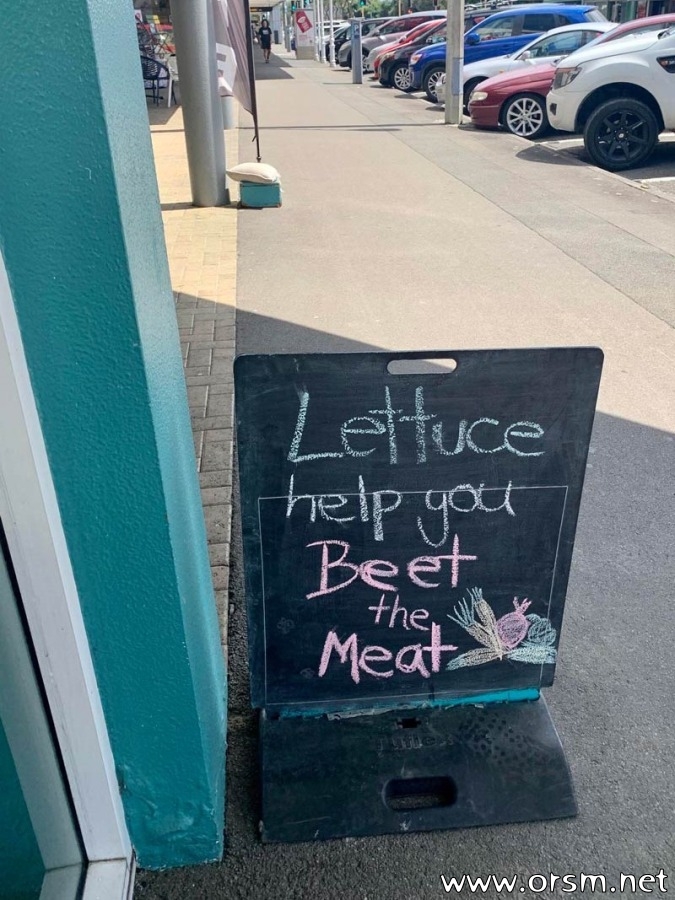 Lettuce
help you
Beet
the
Meat
www.orsm.net